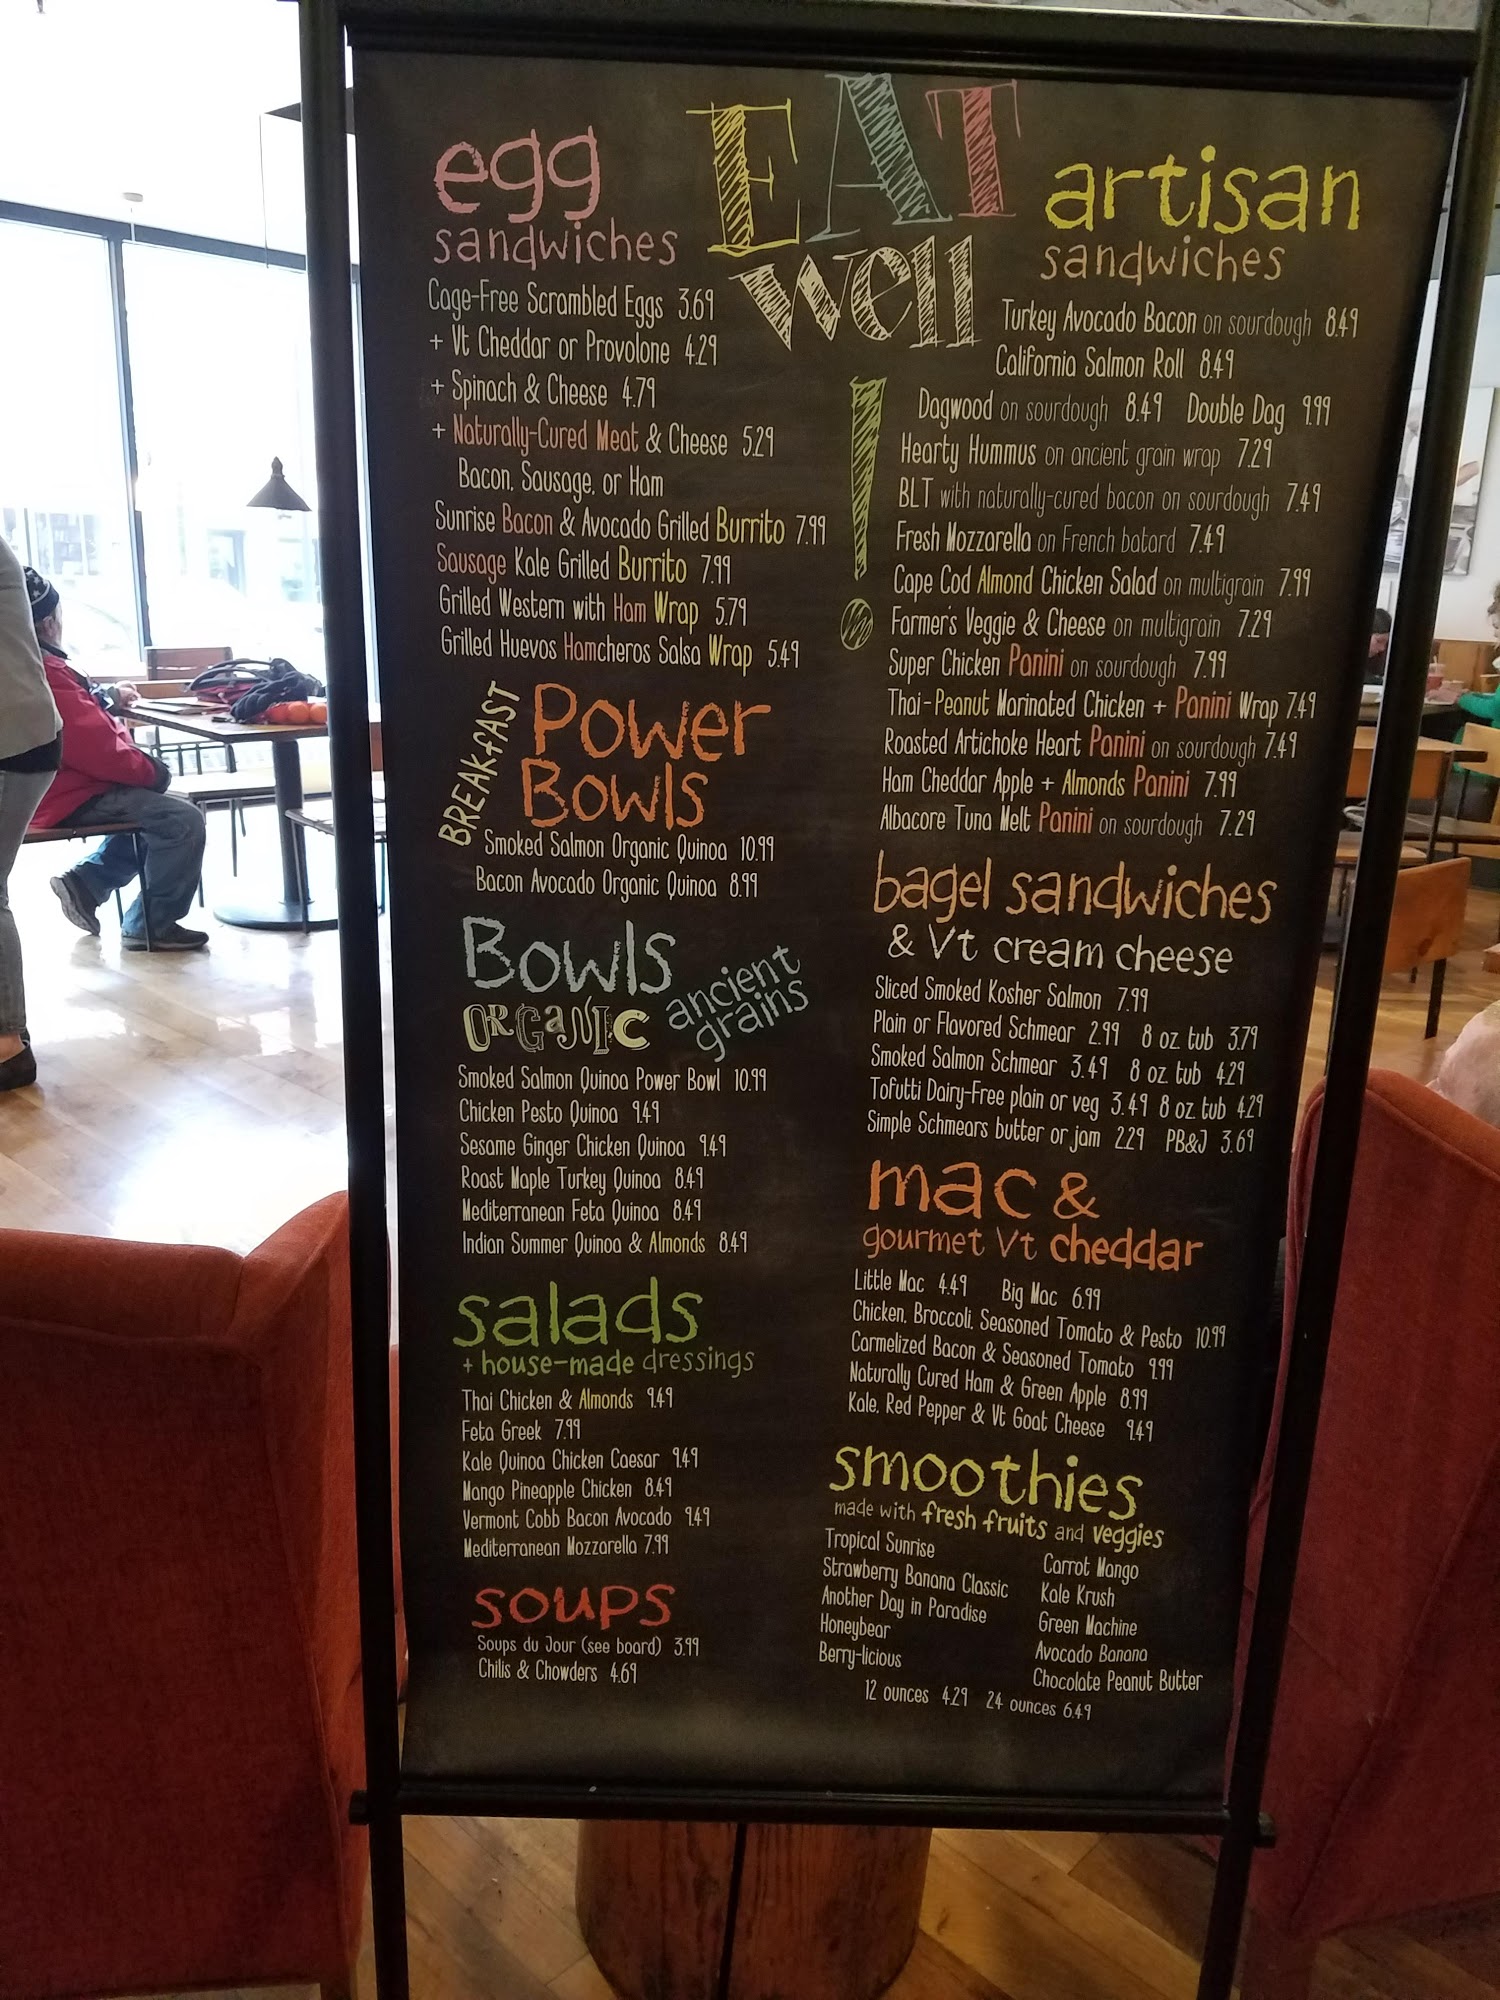 EAT
well
!
egg
sandwiches
Cage-Free Scrambled Eggs 3.69
+ Vt Cheddar or Provolone 4.29
+ Spinach & Cheese 4.79
+ Naturally-Cured Meat & Cheese 5.29
Bacon, Sausage, or Ham
Sunrise Bacon & Avocado Grilled Burrito 7.99
Sausage Kale Grilled Burrito 7.99
Grilled Western with Ham Wrap 5.79
Grilled Huevos Hamcheros Salsa Wrap 5.49
BREAKFAST
Power
Bowls
Smoked Salmon Organic Quinoa 10.99
Bacon Avocado Organic Quinoa 8.99
Bowls
ORGANIC
ancient
grains
Smoked Salmon Quinoa Power Bowl 10.99
Chicken Pesto Quinoa 9.49
Sesame Ginger Chicken Quinoa 9.49
Roast Maple Turkey Quinoa 8.49
Mediterranean Feta Quinoa 8.49
Indian Summer Quinoa & Almonds 8.49
salads
+ house-made dressings
Thai Chicken & Almonds 9.49
Feta Greek 7.99
Kale Quinoa Chicken Caesar 9.49
Mango Pineapple Chicken 8.49
Vermont Cobb Bacon Avocado 9.49
Mediterranean Mozzarella 7.99
soups
Soups du Jour (see board) 3.99
Chilis & Chowders 4.69
artisan
sandwiches
Turkey Avocado Bacon on sourdough 8.49
California Salmon Roll 8.49
Dagwood on sourdough 8.49 Double Dag 9.99
Hearty Hummus on ancient grain wrap 7.29
BLT with naturally-cured bacon on sourdough 7.49
Fresh Mozzarella on French batard 7.49
Cape Cod Almond Chicken Salad on multigrain 7.99
Farmer's Veggie & Cheese on multigrain 7.29
Super Chicken Panini on sourdough 7.99
Thai-Peanut Marinated Chicken + Panini Wrap 7.49
Roasted Artichoke Heart Panini on sourdough 7.49
Ham Cheddar Apple + Almonds Panini 7.99
Albacore Tuna Melt Panini on sourdough 7.29
bagel sandwiches
& Vt cream cheese
Sliced Smoked Kosher Salmon 7.99
Plain or Flavored Schmear 2.99 8 oz. tub 3.79
Smoked Salmon Schmear 3.49 8 oz. tub 4.29
Tofutti Dairy-Free plain or veg 3.49 8 oz. tub 4.29
Simple Schmears butter or jam 2.29 PB&J 3.69
mac &
gourmet Vt cheddar
Little Mac 4.49 Big Mac 6.99
Chicken, Broccoli, Seasoned Tomato & Pesto 10.99
Carmelized Bacon & Seasoned Tomato 9.99
Naturally Cured Ham & Green Apple 8.99
Kale, Red Pepper & Vt Goat Cheese 9.49
smoothies
made with fresh fruits and veggies
Tropical Sunrise
Strawberry Banana Classic
Another Day in Paradise
Honeybear
Berry-licious
Carrot Mango
Kale Krush
Green Machine
Avocado Banana
Chocolate Peanut Butter
12 ounces 4.29 24 ounces 6.49